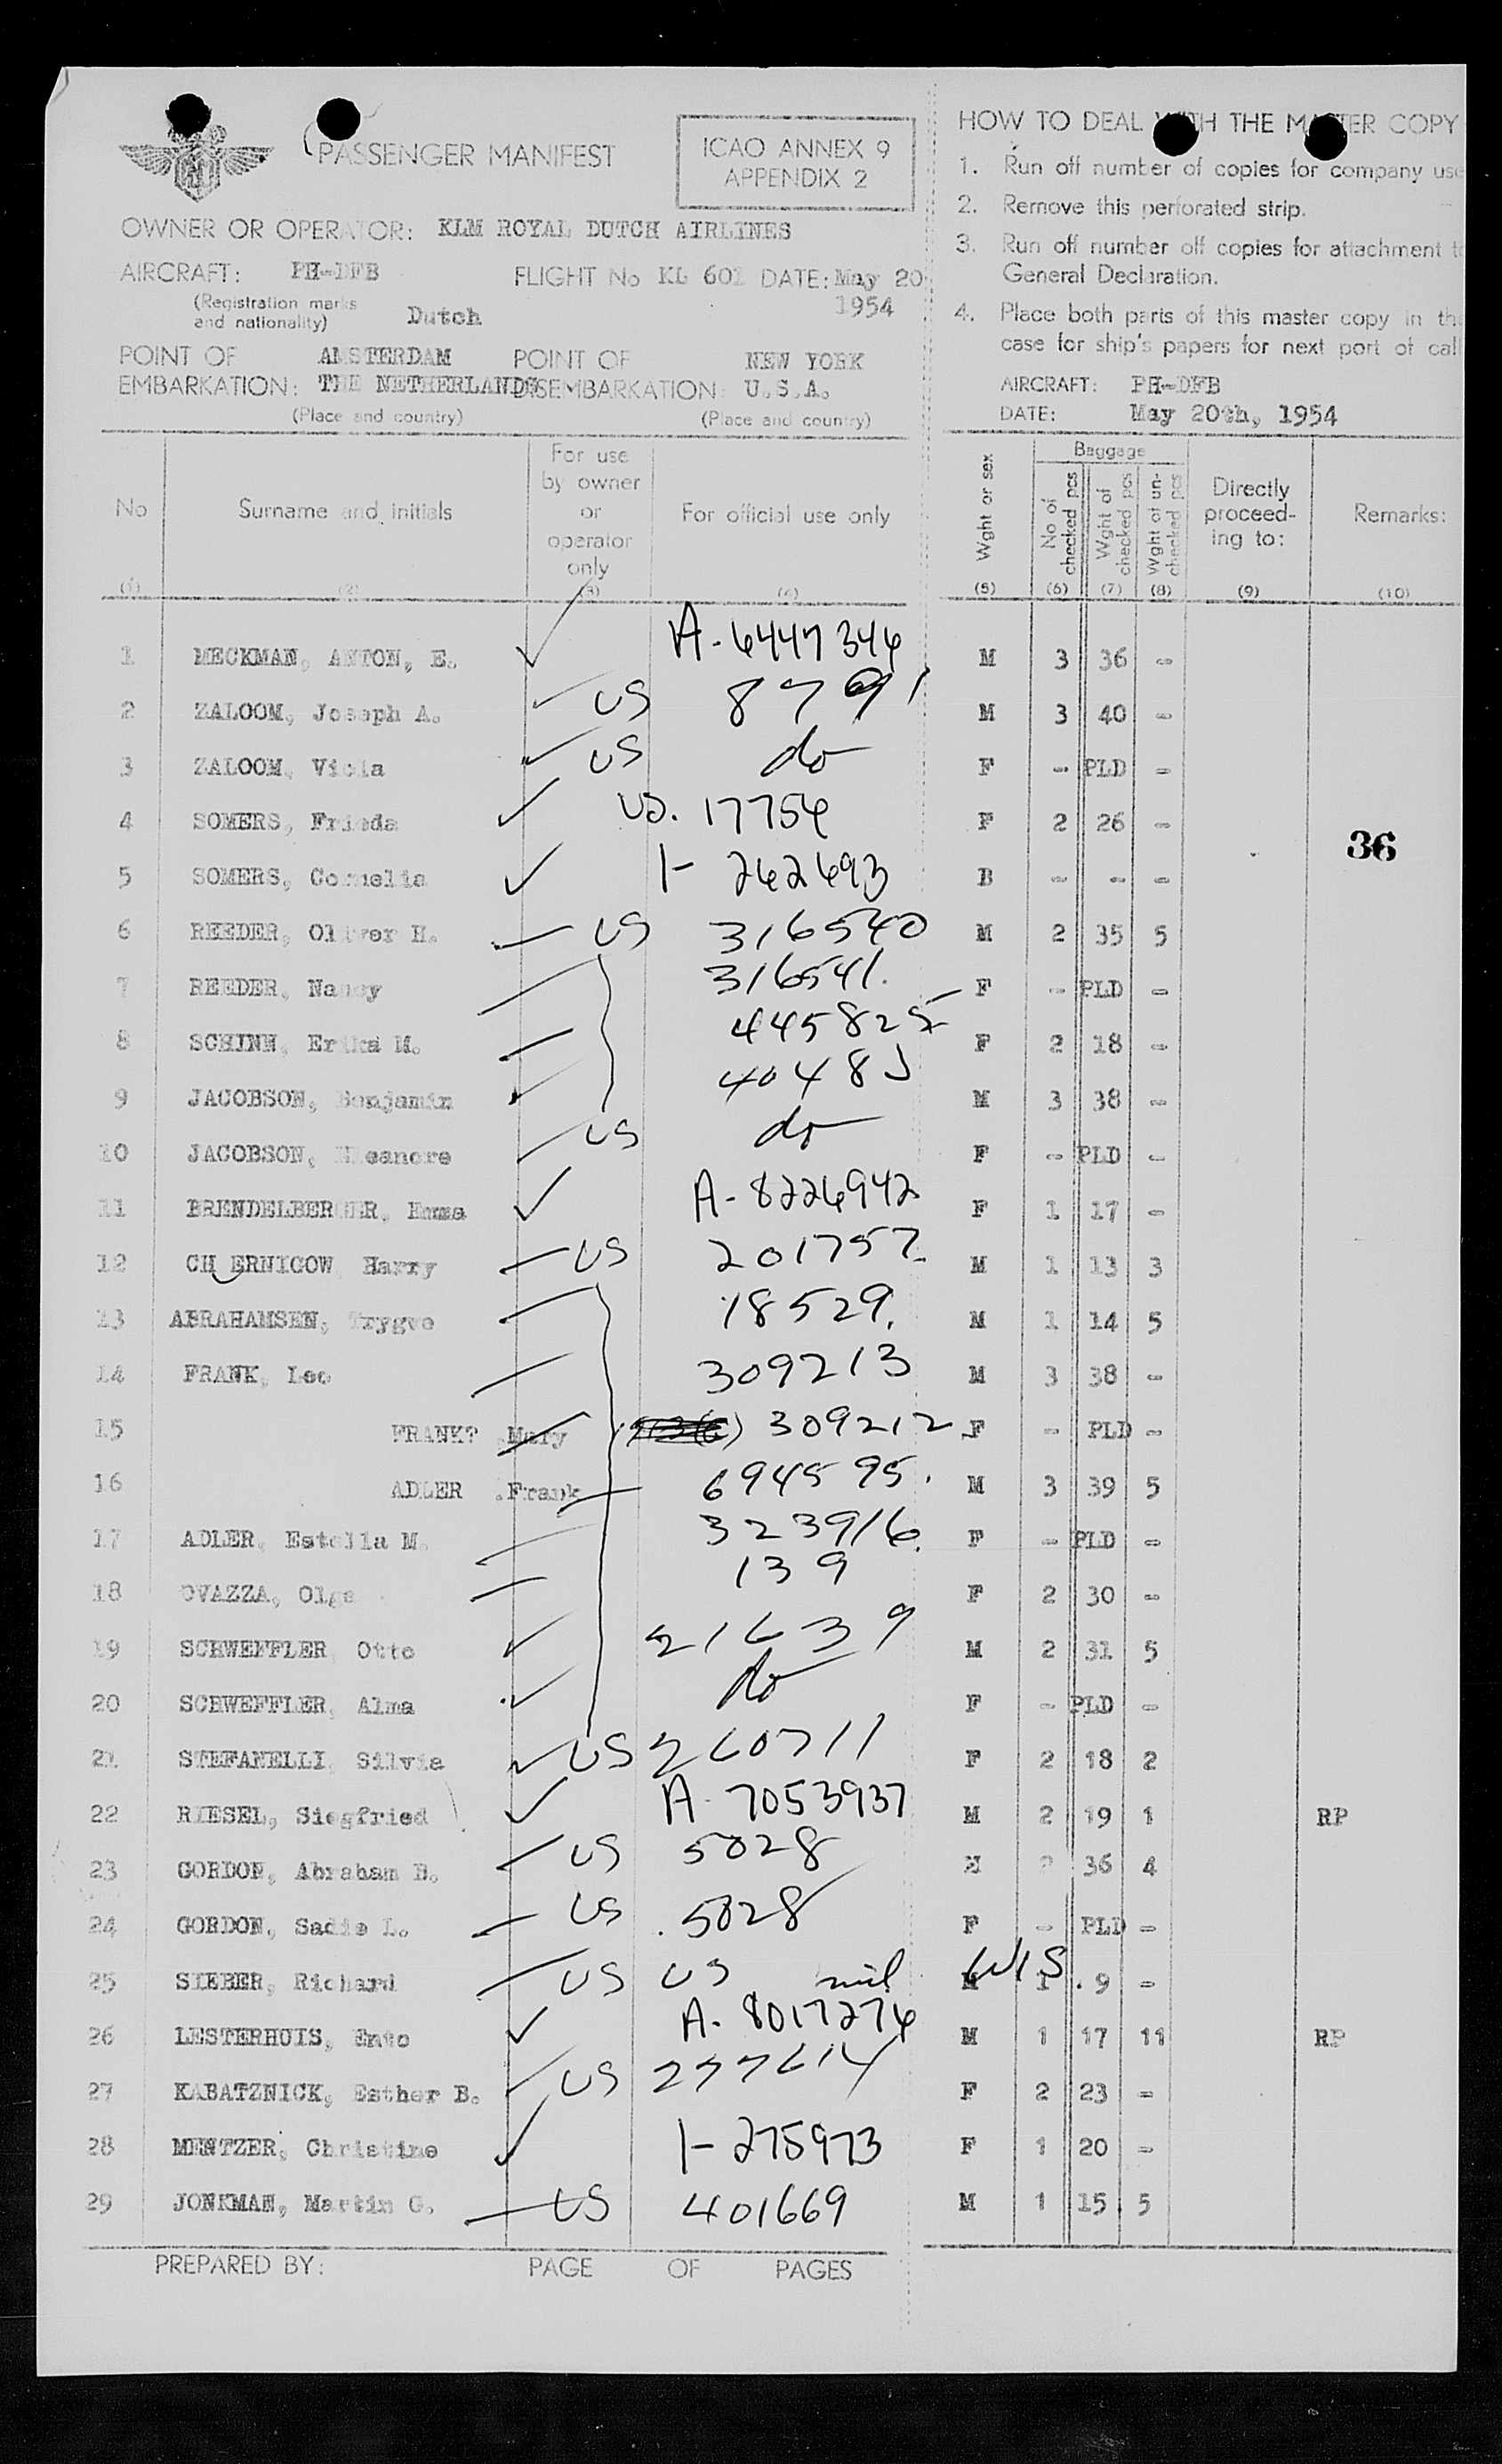 PASSENGER MANIFEST
ICAO ANNEX 9
APPENDIX 2
OWNER OR OPERATOR: KLM ROYAL DUTCH AIRLINES
AIRCRAFT: PH-DFB FLIGHT No KL 601 DATE: May 20
1954
(Registration marks
and nationality) Dutch
POINT OF AMSTERDAM POINT OF NEW YORK
EMBARKATION: THE NETHERLANDS DISEMBARKATION: U.S.A.
(Place and country) (Place and country)
HOW TO DEAL WITH THE MASTER COPY
1. Run off number of copies for company use
2. Remove this perforated strip.
3. Run off number off copies for attachment to
General Declaration.
4. Place both parts of this master copy in the
case for ship's papers for next port of call
AIRCRAFT: PH-DFB
DATE: May 20th, 1954
No Surname and initials For use by owner or operator only For official use only Wght or sex Baggage No of checked pcs Wght of checked pcs Wght of un-checked pcs Directly proceed-ing to: Remarks:
(1) (2) (3) (4) (5) (6) (7) (8) (9) (10)
1 MECKMAN, ANTON, E. A-6447346 M 3 36 -
2 ZALOOM, Joseph A. US 8791 M 3 40 -
3 ZALOOM, US do F - PLD -
4 SOMERS, Frieda US. 17756 F 2 26 -
36
5 SOMERS, Cornelia 1-262693 B - - -
6 REEDER, Oliver H. US 316540 M 2 35 5
7 REEDER, Nancy 316541. F - PLD -
8 SCHINN, Erika M. 445825 F 2 18 -
9 JACOBSON, Benjamin 40485 M 3 38 -
10 JACOBSON, Eleanore US do F - PLD -
11 BRENDELBERGER, Emma A-8226942 F 1 17 -
12 CH ERNICOW Harry US 201757 M 1 13 3
13 ABRAHAMSEN, Trygve 18529. M 1 14 5
14 FRANK, Leo 309213 M 3 38 -
15 FRANK? Mary 309212 F - PLD -
16 ADLER .Frank 694595. M 3 39 5
17 ADLER, Estella M. 323916. F - PLD -
18 OVAZZA, Olga 139 F 2 30 -
19 SCHWEFFLER Otto 21639 M 2 31 5
20 SCHWEFFLER, Alma do F - PLD -
21 STEFANELLI, Silvia US 260711 F 2 18 2
22 RIESEL, Siegfried A-7053937 M 2 19 1 RP
23 GORDON, Abraham B. US 5028 M 2 36 4
24 GORDON, Sadie L. US 5028 F - PLD -
25 SIEBER, Richard US US mil WIS M 1 9 -
26 LESTERHUIS, A-8017276 M 1 17 11 RP
27 KABATZNICK, Esther B. US 277614 F 2 23 -
28 MENTZER, Christine 1-275973 F 1 20 -
29 JONKMAN, Martin G. US 401669 M 1 15 5
PREPARED BY: PAGE OF PAGES